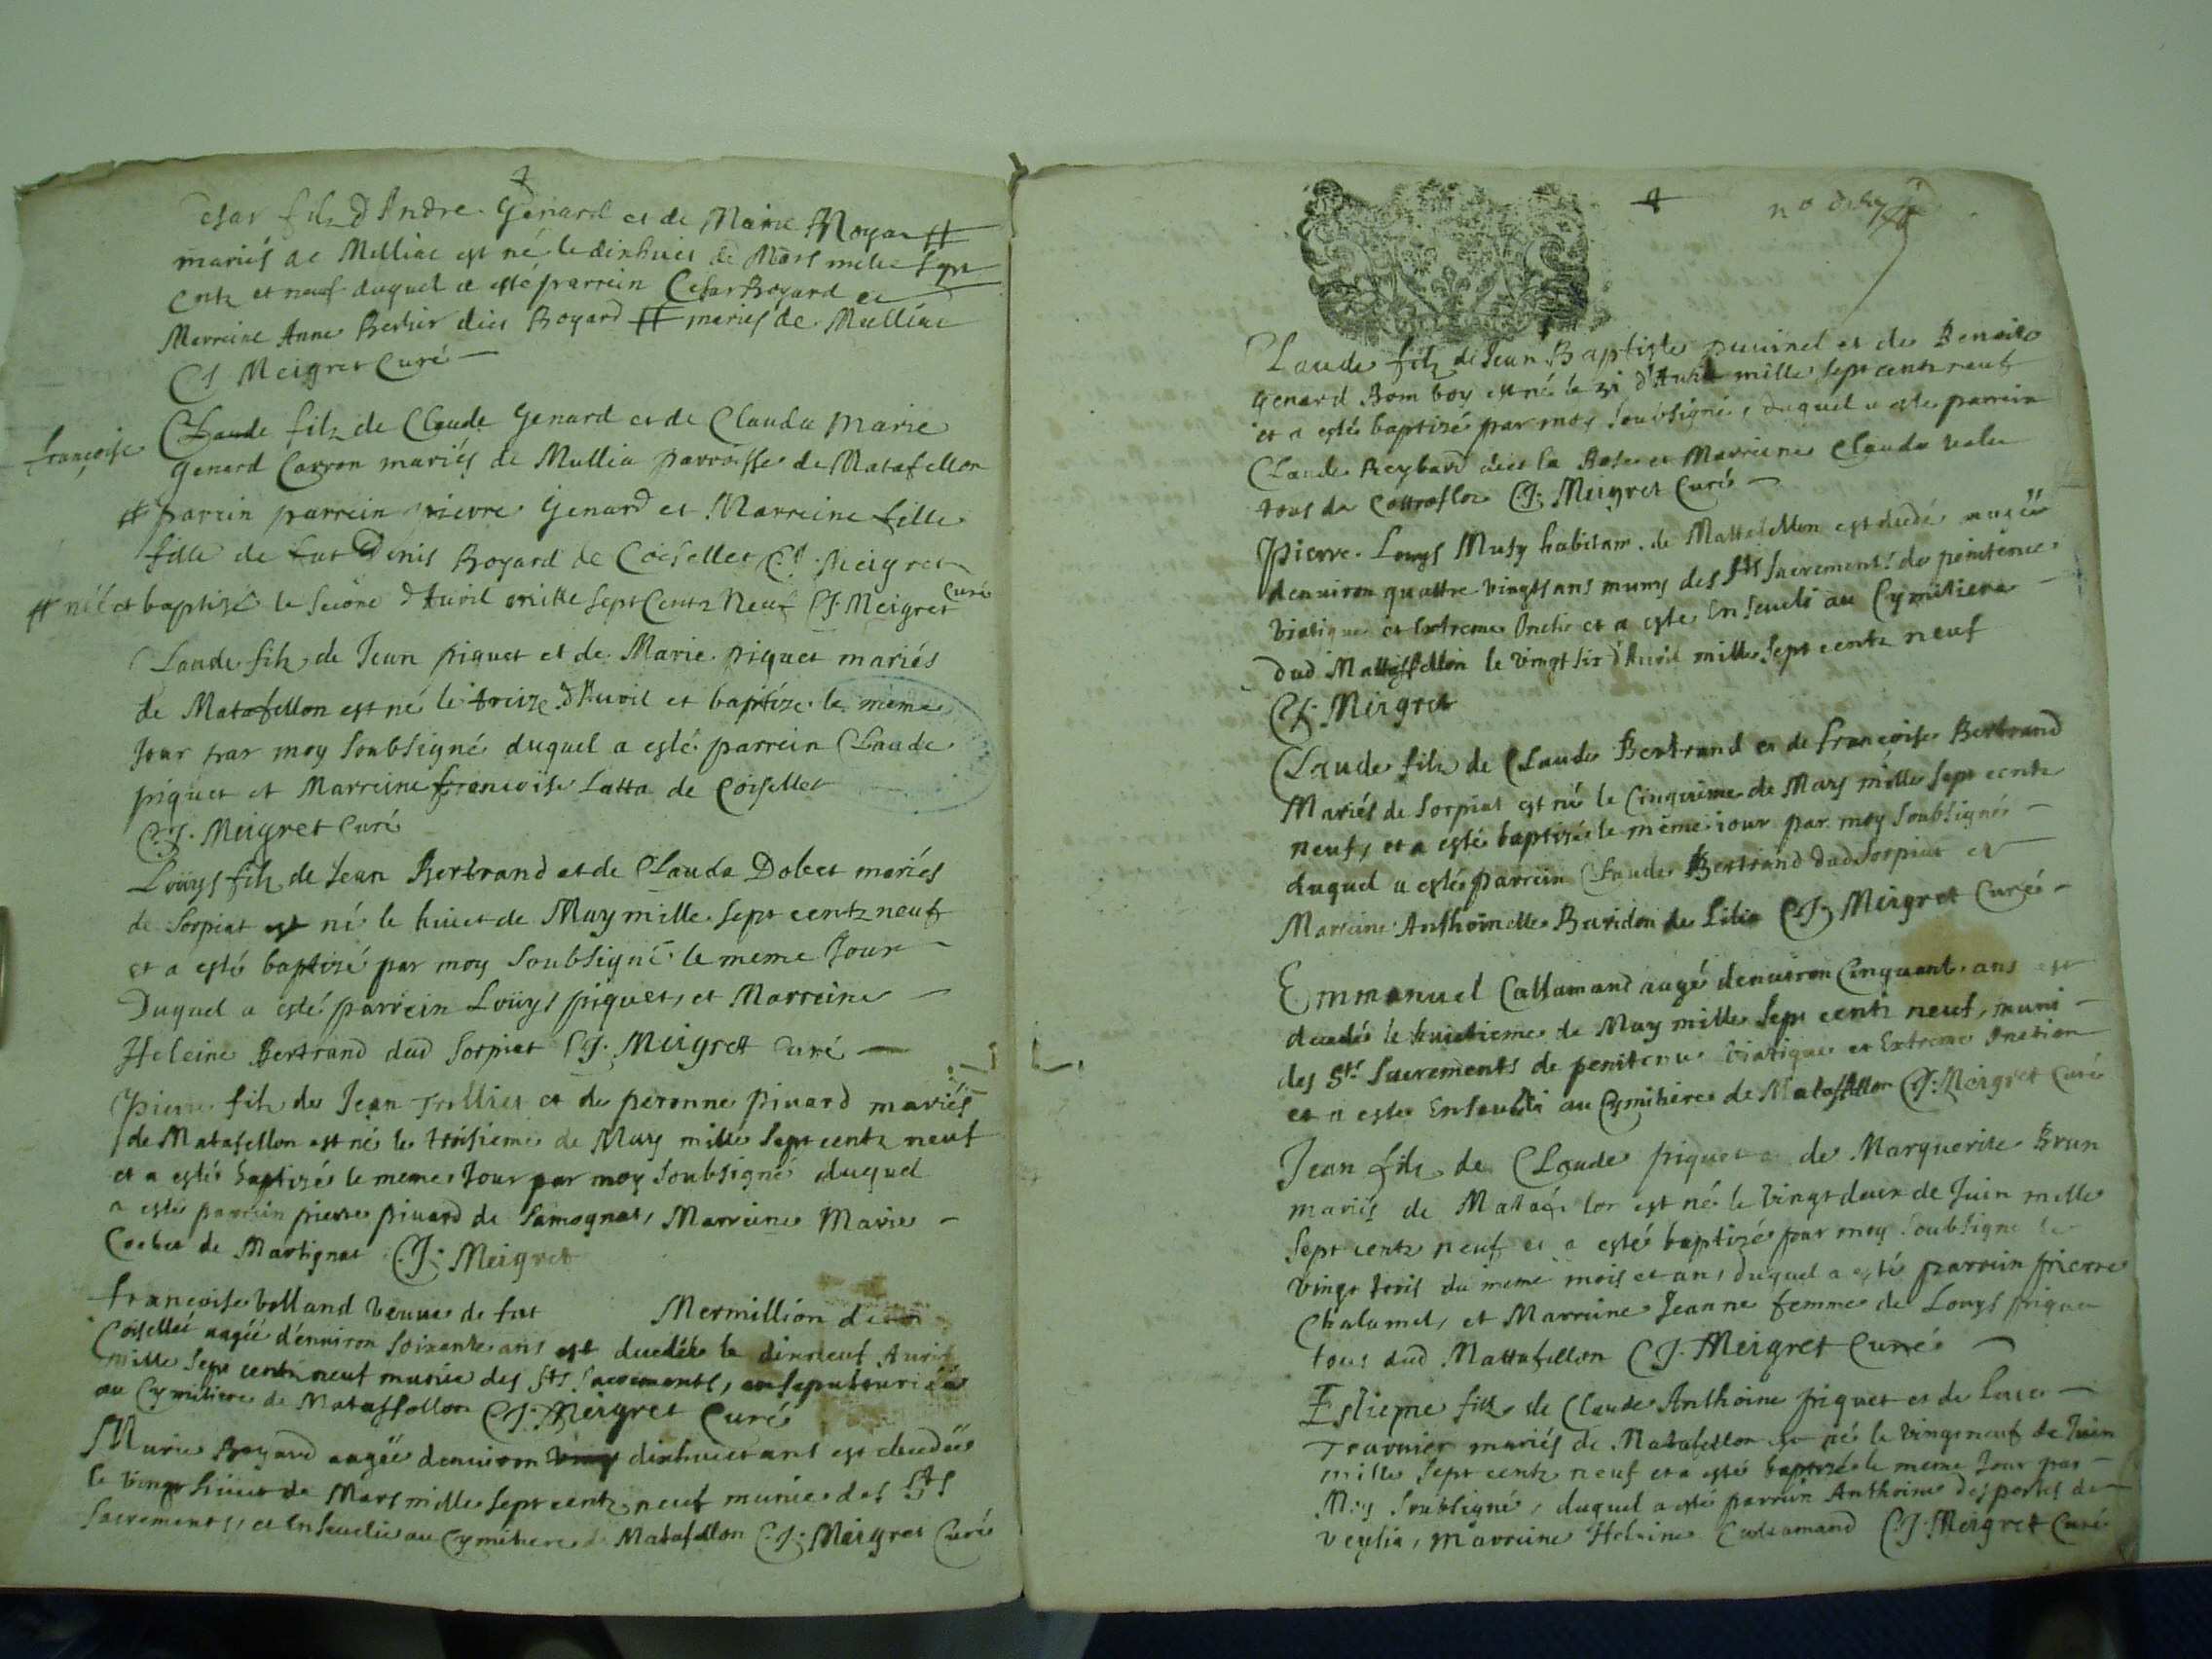 Cesar filz d'Andre Genard et de Marie Moyar #
mariés de Mulliac est né le dixhuict de Mars mille sept
centz et neuf duquel a esté parrein Cesar Boyard et
Marreine Anne Berlier dict Boyard # mariés de Mulliac
C J Meigret Curé
Claude filz de Claude Genard et de Clauda Marie
françoise
Genard Carron mariés de Mullia parroisse de Matafellon
# parrein parrein pierre Genard et Marreine fille
fille de fut Denis Boyard de Coiselles C J Meigret
# néé et baptizé le d'Auril mille sept Centz Neuf C J. Meigret Curé
Claude filz de Jean piquet et de Marie piquet mariés
de Matafellon est né le treize d'Auril et baptize le méme
Jour par moy soubsigné duquel a esté parrein Claude
piquet et Marreine françoise Latta de Coiselles
C J. Meigret Curé
Loüys filz de Jean Bertrand et de Clauda Dolect mariés
de Sorpiat est né le huict de May mille sept centz neuf
et a esté baptizé par moy soubsigné le meme Jour
Duquel a esté parrein Loüys piquet, et Marreine
Heleine Bertrand dud Sorpiat C J. Meigret Curé
Pierre filz de Jean Trollier et de peronne piuard mariés
de Matafellon est né le troisieme de May mille sept centz neuf
et a esté baptizé le meme Jour par moy soubsigné duquel
a esté parrein pierre piuard de Samognat, Marreine Marie
Cochet de Martignat C J. Meigret
françoise Volland Veuue de fut Mermillion de
Coiselles aagéé d'enuiron soixante ans est decedée le dixneuf Auril
mille sept centz neuf munie des Sts Sacrements, ensepulturéé
au Cymitiere de Mataffollon C J. Meigret Curé
Marie Boyard aagéé denuiron dixhuict ans est decedéé
le vingt huict de Mars mille sept centz neuf munie des Sts
Sacrements, et Enseuelie au Cymitiere de Matafellon C J. Meigret Curé
Claude filz de Jean Baptiste puuinel et de Benoite
Genard Bom boy est né le 21 d'Auril mille sept centz neuf
et a esté baptizé par moy soubsigné, duquel a esté parrein
Claude Reybard dict la Rose et Marreine Clauda
tous de C J. Meigret Curé
Pierre Louys Musy habitant de Mattefellon est dedé aagéé
denuiron quattre vingts ans muny des Sts Sacrements de penitence
Viatique et Extreme Onctio et a este Enseueli au Cymitiere
dud Mattaffellon le vingt six d'Auril mille sept centz neuf
C J. Meigret
Claude filz de Claude Bertrand et de françoise Bertrand
Mariés de Sorpiat est né le Cinquieme de May mille sept centz
neuf, et a esté baptizé le méme iour par moy soubsigné
duquel a esté parrein Claude Bertrand dud Sorpiat et
Marreine Anthoinette Buridon de C J. Meigret Curé
Emmanuel Callamand aagé denuiron Cinquante ans est
decedé le huictieme de May mille sept centz neuf, muni
des Sts Sacrements de penitence Viatique et Extreme Onction
et a este Enseueli au Cymitiere de Mataffellon C J. Meigret Curé
Jean filz de Claude piquet et de Marguerite Brun
mariés de est né le vingt deux de Juin mille
sept centz neuf et a esté baptizé par moy soubsigne le
vingt trois du meme mois et an, duquel a esté parrein pierre
Chalumel, et Marreine Jeanne femme de Louys piquet
tous dud Mattafellon C J. Meigret Curé
Estienne filz de Claude Anthoine piquet et de Luce
Trauuier mariés de Matafellon est né le vingtneuf de Juin
mille sept centz neuf et a esté baptizé le meme Jour par
Moy soubsigné, duquel a esté parrein Anthoine desportes de
Veylia, Marreine Heleine Callamand C J. Meigret Curé